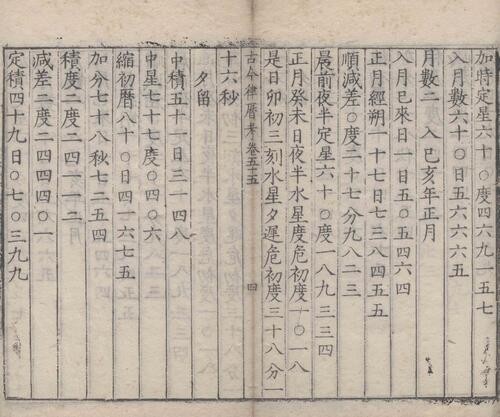 加特定星六十〇度四六九一五七
入月數六十〇日五六六六五
月數二入巳亥年正月
入月已來日一日五〇五四六四
正月經朔一十七日七三八四五五
順減差〇度二十七分九八二三
晨前夜半定星六十〇度一八九三三四
正月癸未日夜半水星度危初度一〇一八
是日卯初三刻水星夕遲危初度三十八分一
古今律曆考卷五十五
四
十六秒
夕留
中積五十一日三一四八
中星七十七度〇四〇六
縮初曆八十〇日四一六七五
加分七十八秒七二五四
積度二度二四一一二
減差二度二四四四〇一
定積四十九日〇七〇三九九